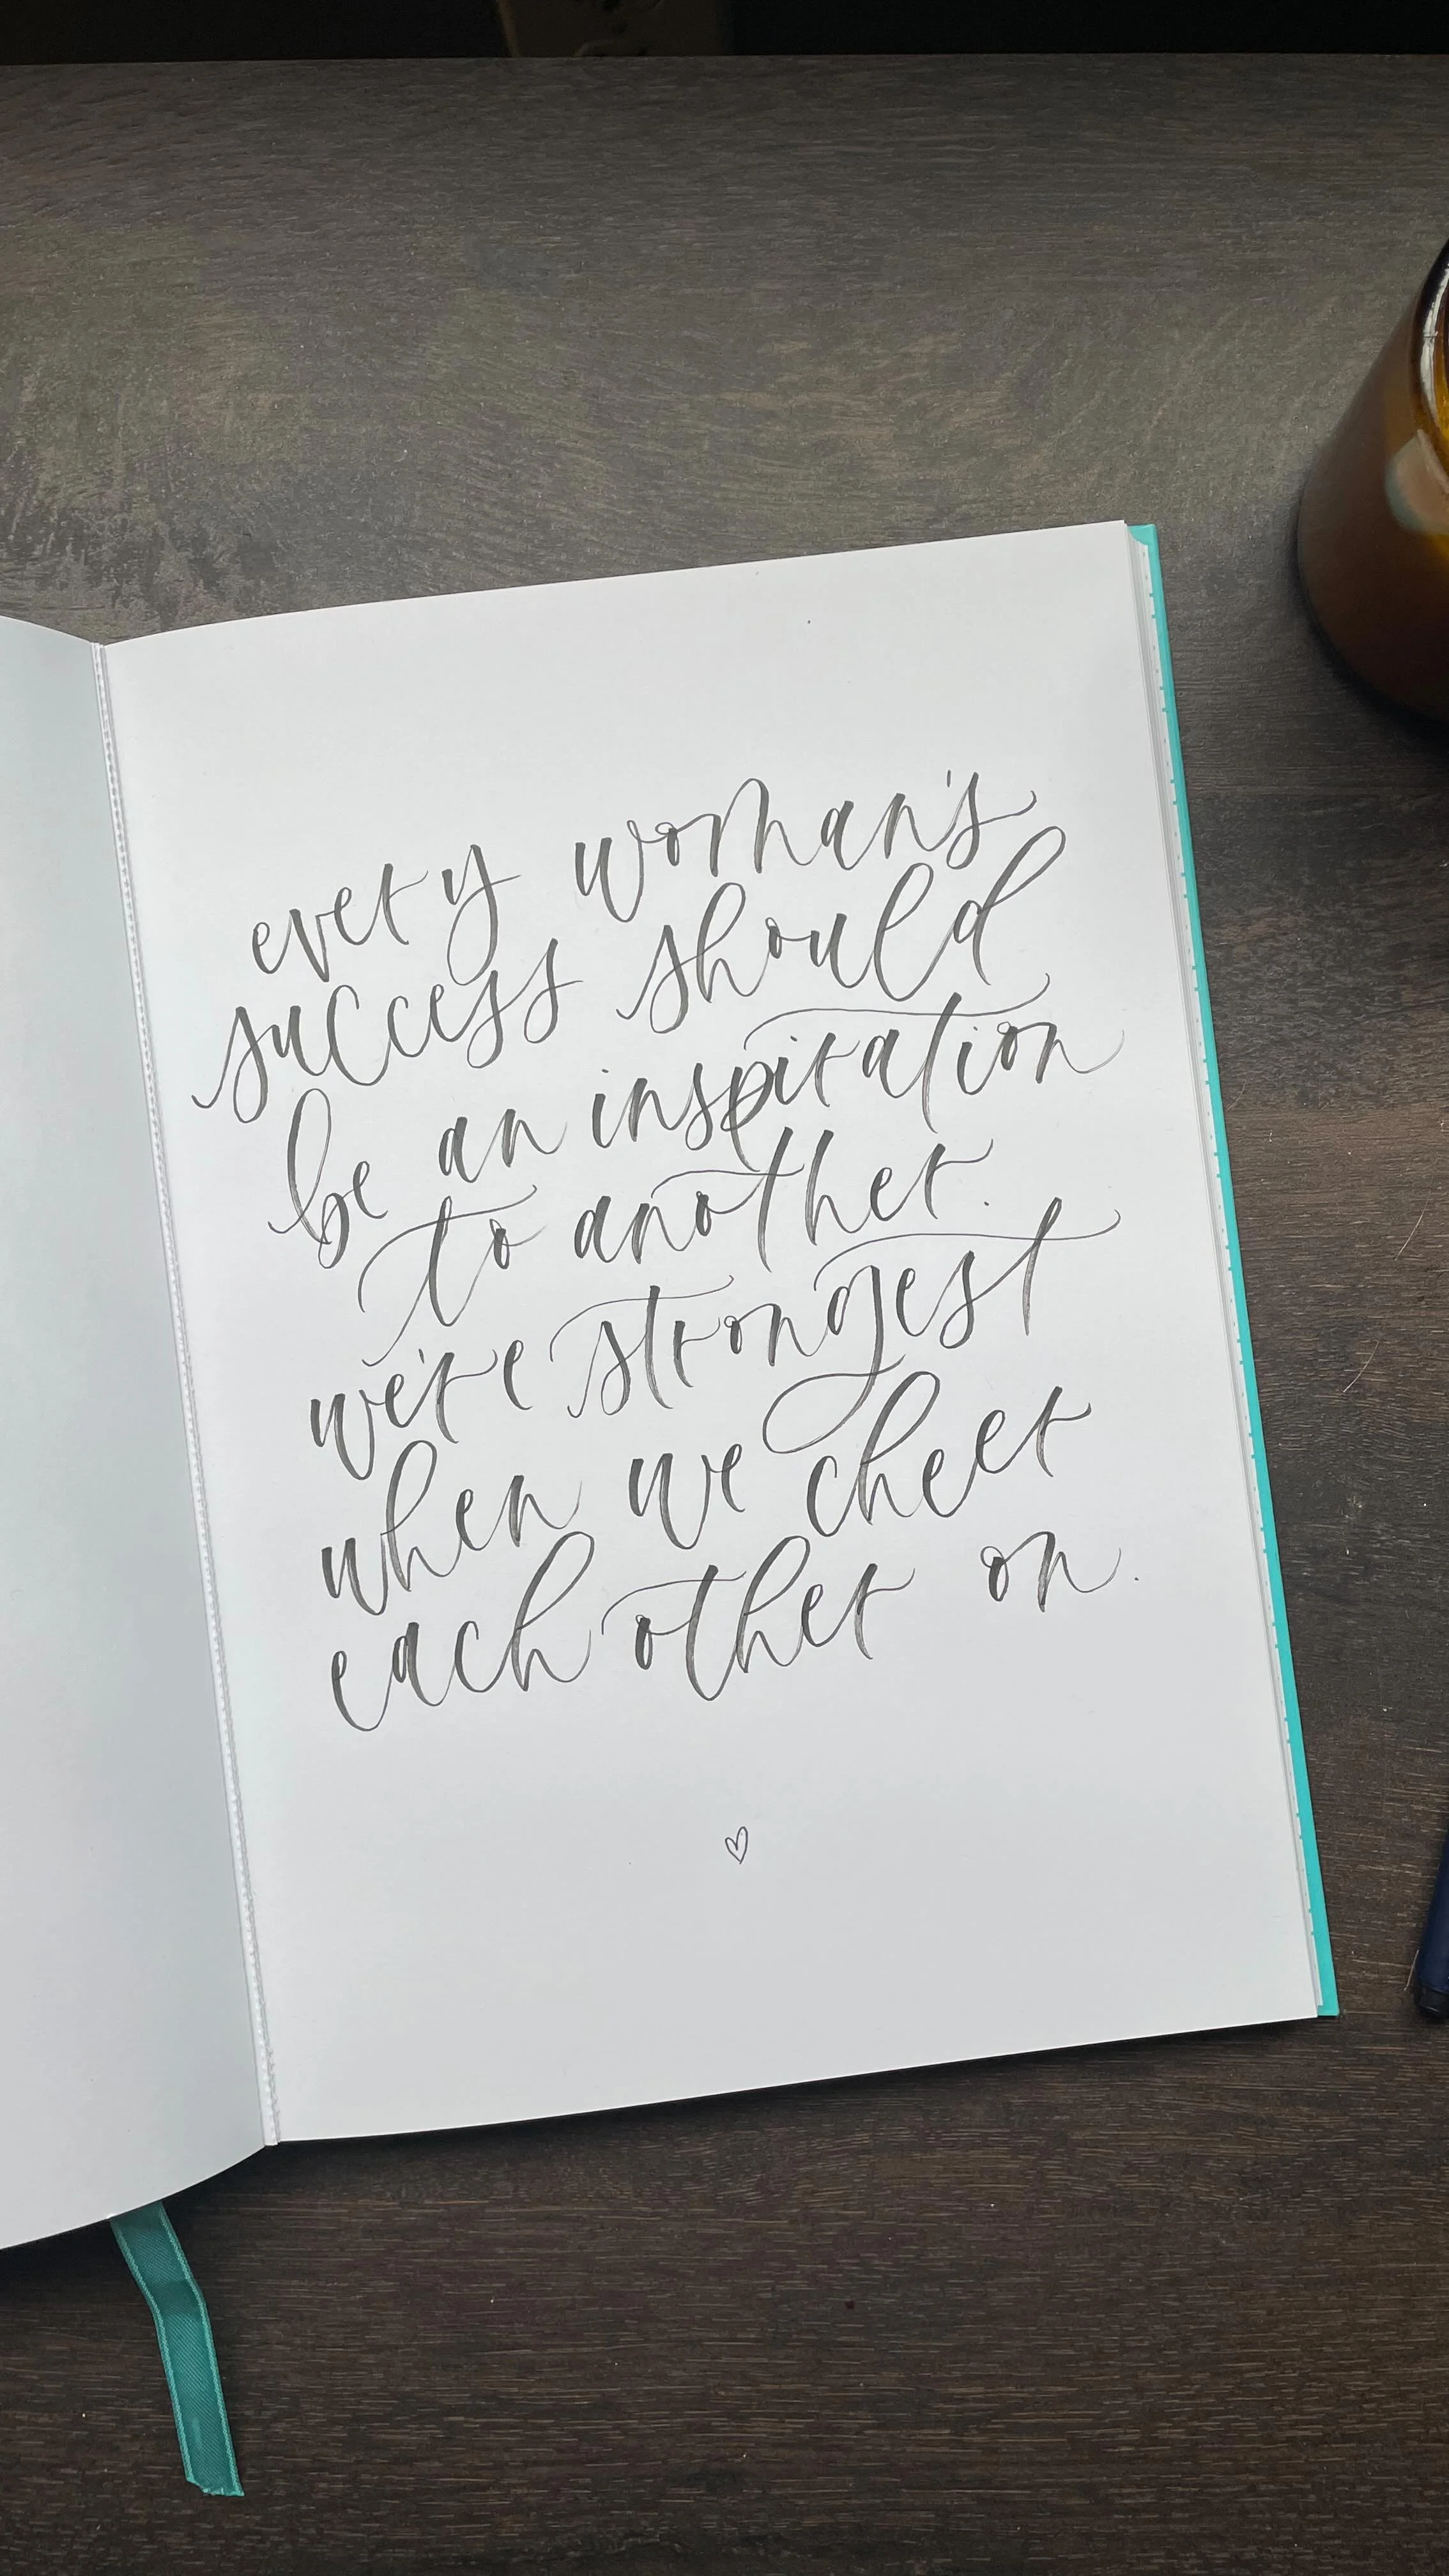 every woman's
success should
be an inspiration
to another.
we're strongest
when we cheer
each other on.